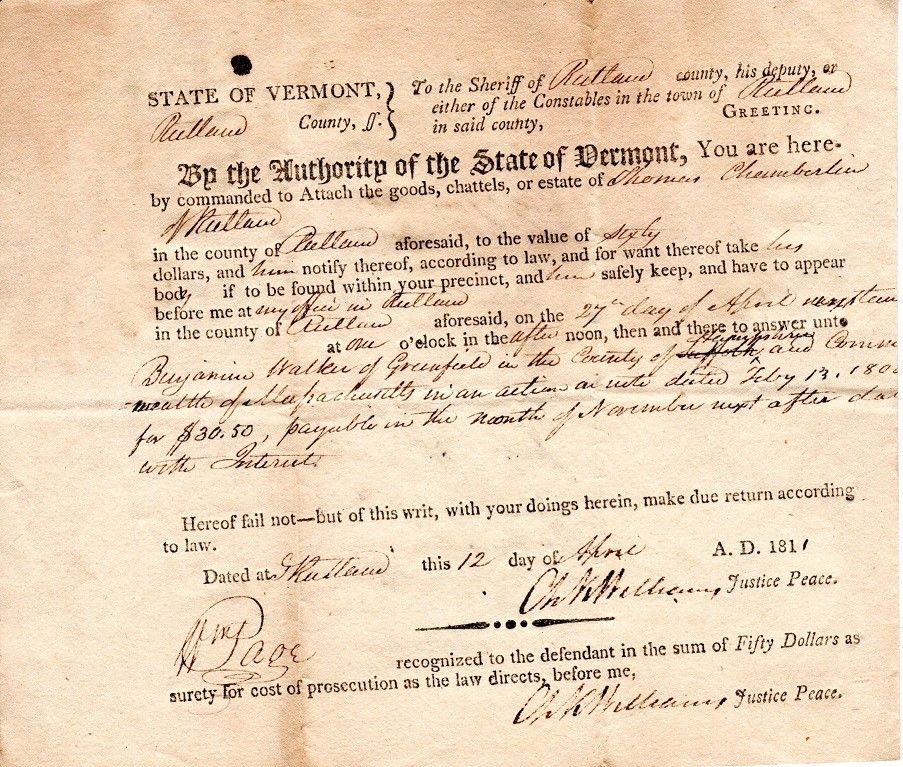 STATE OF VERMONT,
Rutland County, ss.
To the Sheriff of Rutland county, his deputy, or
either of the Constables in the town of Rutland
in said county, GREETING.
By the Authority of the State of Vermont, You are here-
by commanded to Attach the goods, chattels, or estate of Thomas Chamberlin
of Rutland
in the county of Rutland aforesaid, to the value of sixty
dollars, and him notify thereof, according to law, and for want thereof take his
body if to be found within your precinct, and him safely keep, and have to appear
before me at my office in Rutland
in the county of Rutland aforesaid, on the 27th day of April
at one o'clock in the after noon, then and there to answer unto
Benjamin Walker of Greenfield in the County of Hampshire and Common
wealth of Massachusetts in an action on note dated Feby 13. 180
for $30.50, payable in the month of November next after da
with Interest.
Hereof fail not—but of this writ, with your doings herein, make due return according
to law.
Dated at Rutland this 12 day of April A. D. 1811
Ch K Williams Justice Peace.
Wm Page
recognized to the defendant in the sum of Fifty Dollars as
surety for cost of prosecution as the law directs, before me,
Ch K Williams Justice Peace.